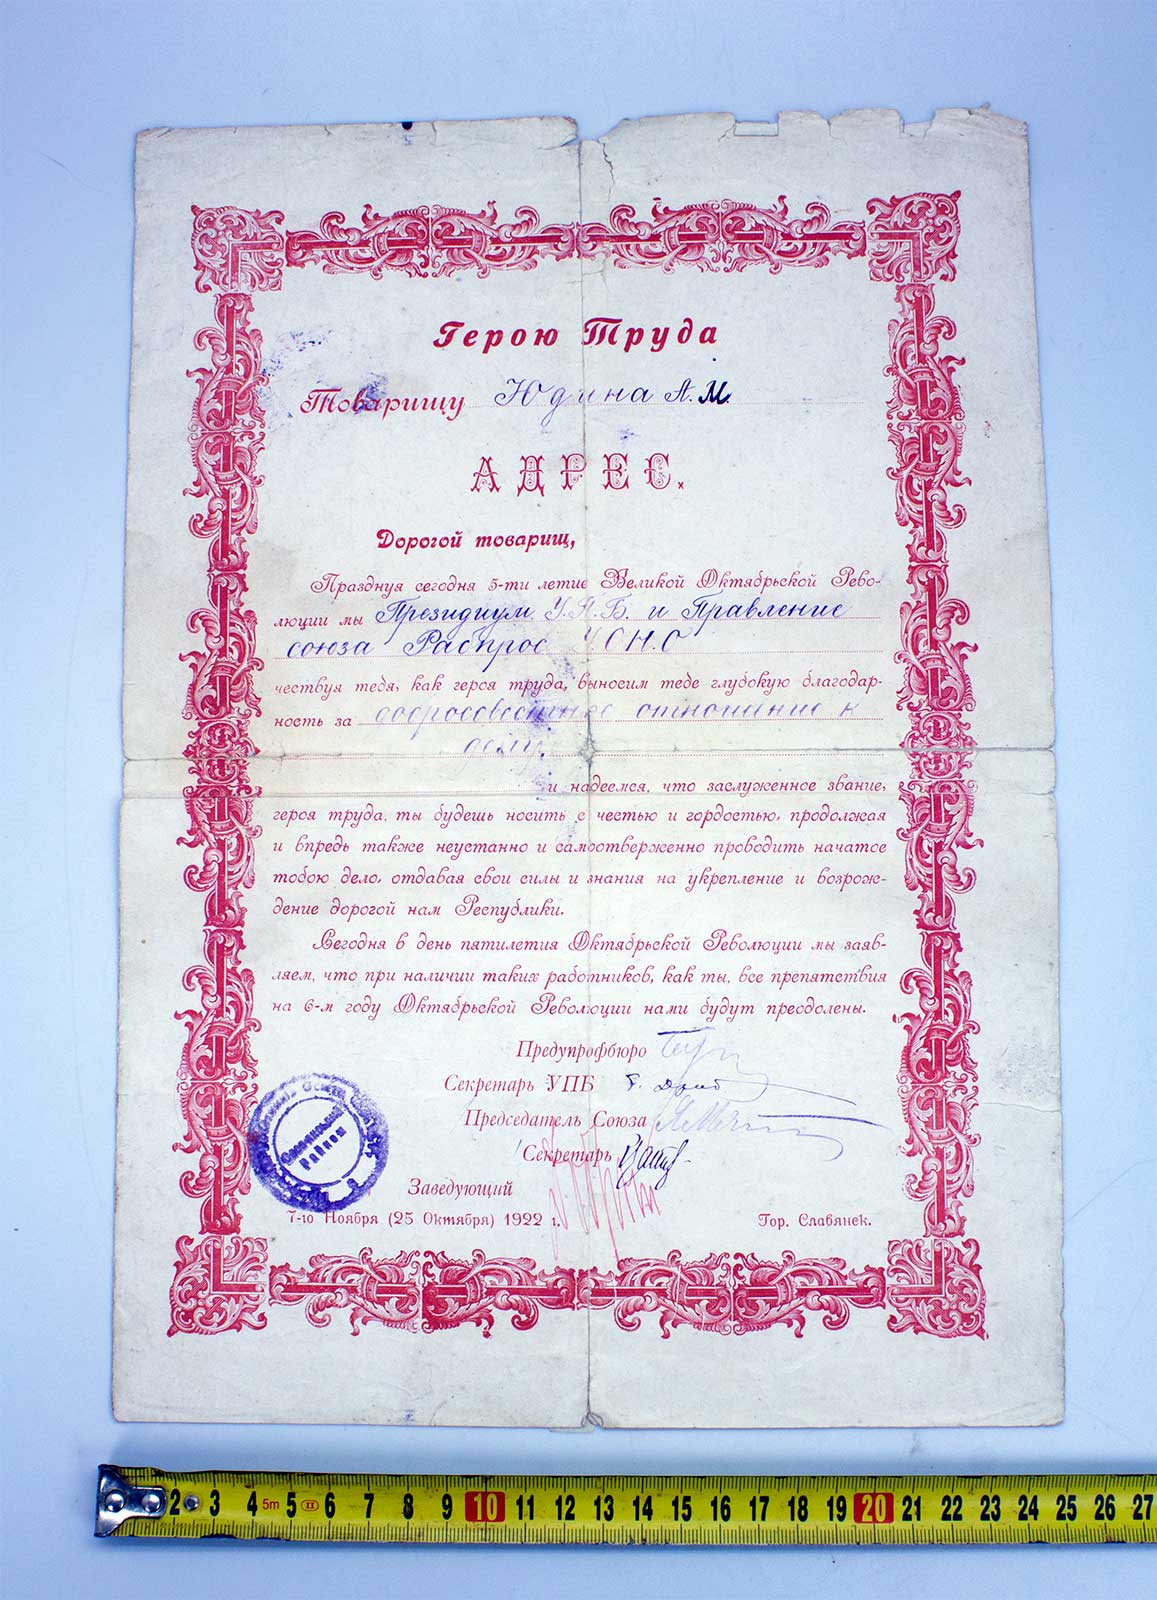 Герою Труда
Товарищу Юдина А.М.
АДРЕС.
Дорогой товарищ,
Празднуя сегодня 5-ти летие Великой Октябрьской Рево-
люции мы Президиум У.П.Б. и Правление
союза Рабпрос У.О.Н.О
чествуя тебя, как героя труда, выносим тебе глубокую благодар-
ность за добросовестное отношение к
делу
и надеемся, что заслуженное звание,
героя труда, ты будешь носить с честью и гордостью, продолжая
и впредь также неустанно и самоотверженно проводить начатое
тобою дело, отдавая свои силы и знания на укрепление и возрож-
дение дорогой нам Республики.
Сегодня в день пятилетия Октябрьской Революции мы заяв-
ляем, что при наличии таких работников, как ты, все препятствия
на 6-м году Октябрьской Революции нами будут преодолены.
Предупрофбюро
Секретарь УПБ
Председатель Союза
Секретарь
Заведующий
7-го Ноября (25 Октября) 1922 г.
Гор. Славянск.
2 3 4 5m 5 II 6 7 8 9 10 11 12 13 14 15 16 17 18 19 20 21 22 23 24 25 26 27